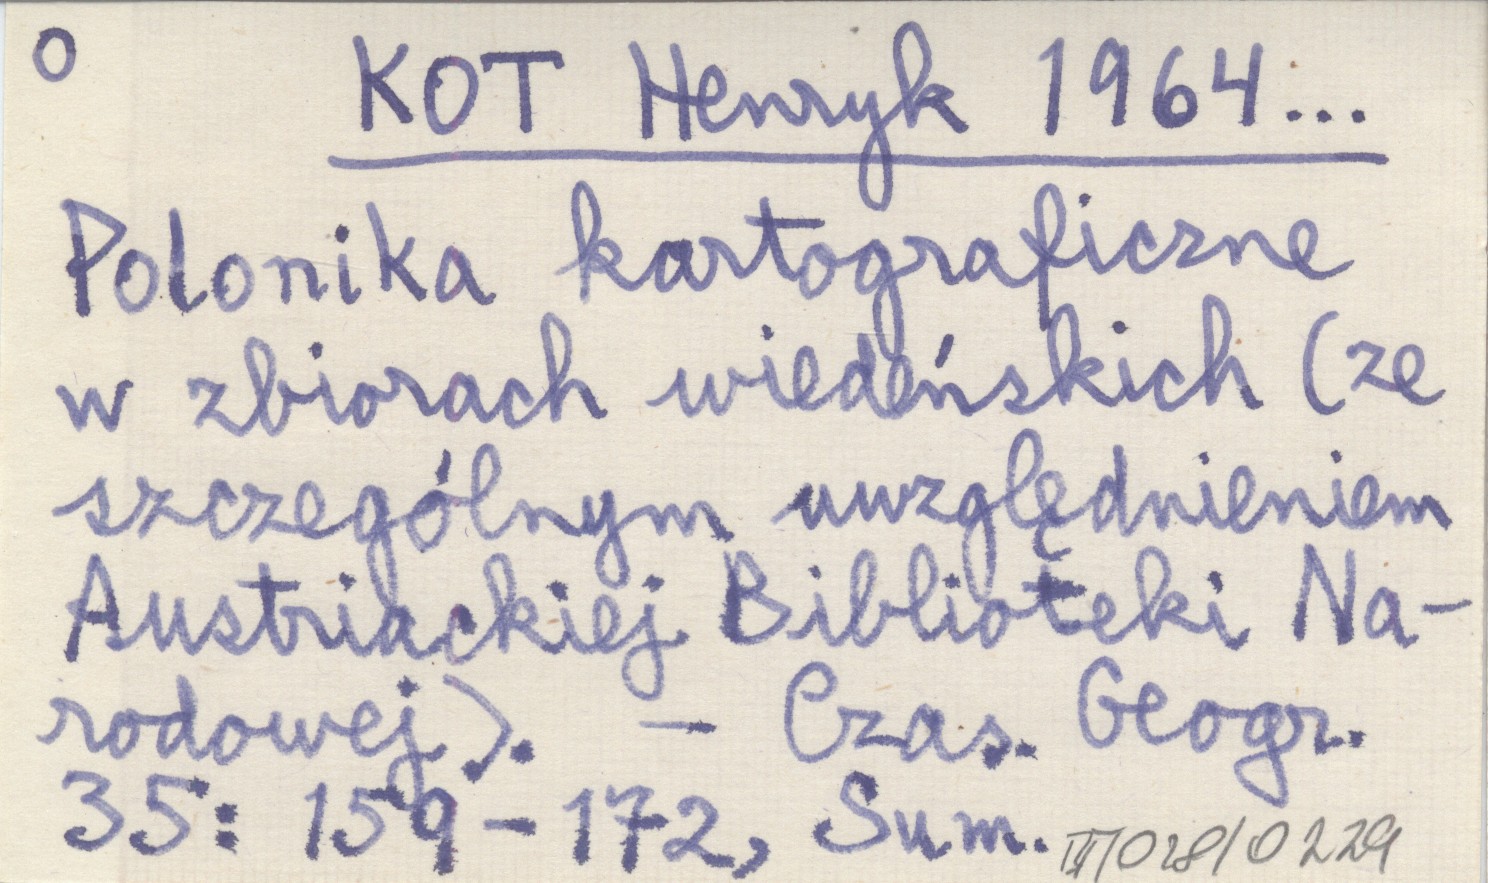 O
KOT Henryk 1964...
Polonika kartograficzne
w zbiorach wiedeńskich (ze
szczególnym uwzględnieniem
Austriackiej Biblioteki Na-
rodowej). - Czas. Geogr.
35: 159-172, Sum.
III/028/0229